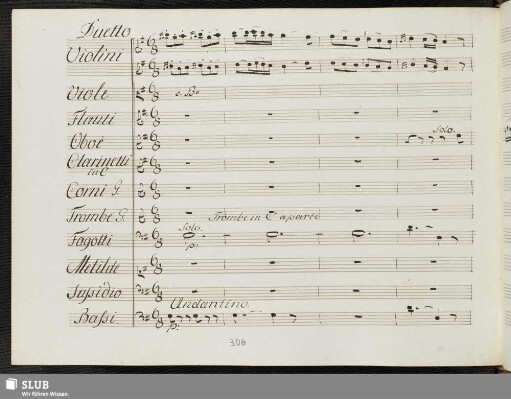 Duetto
Violini
Viole
c. B.
Flauti
Oboe
Solo.
Clarinetti
in C
Corni G.
Trombe G.
Trombe in C a parte
Fagotti
Solo.
p:
Metilde
Sussidio
Andantino
Bassi
p:
306
SLUB
Wir führen Wissen.